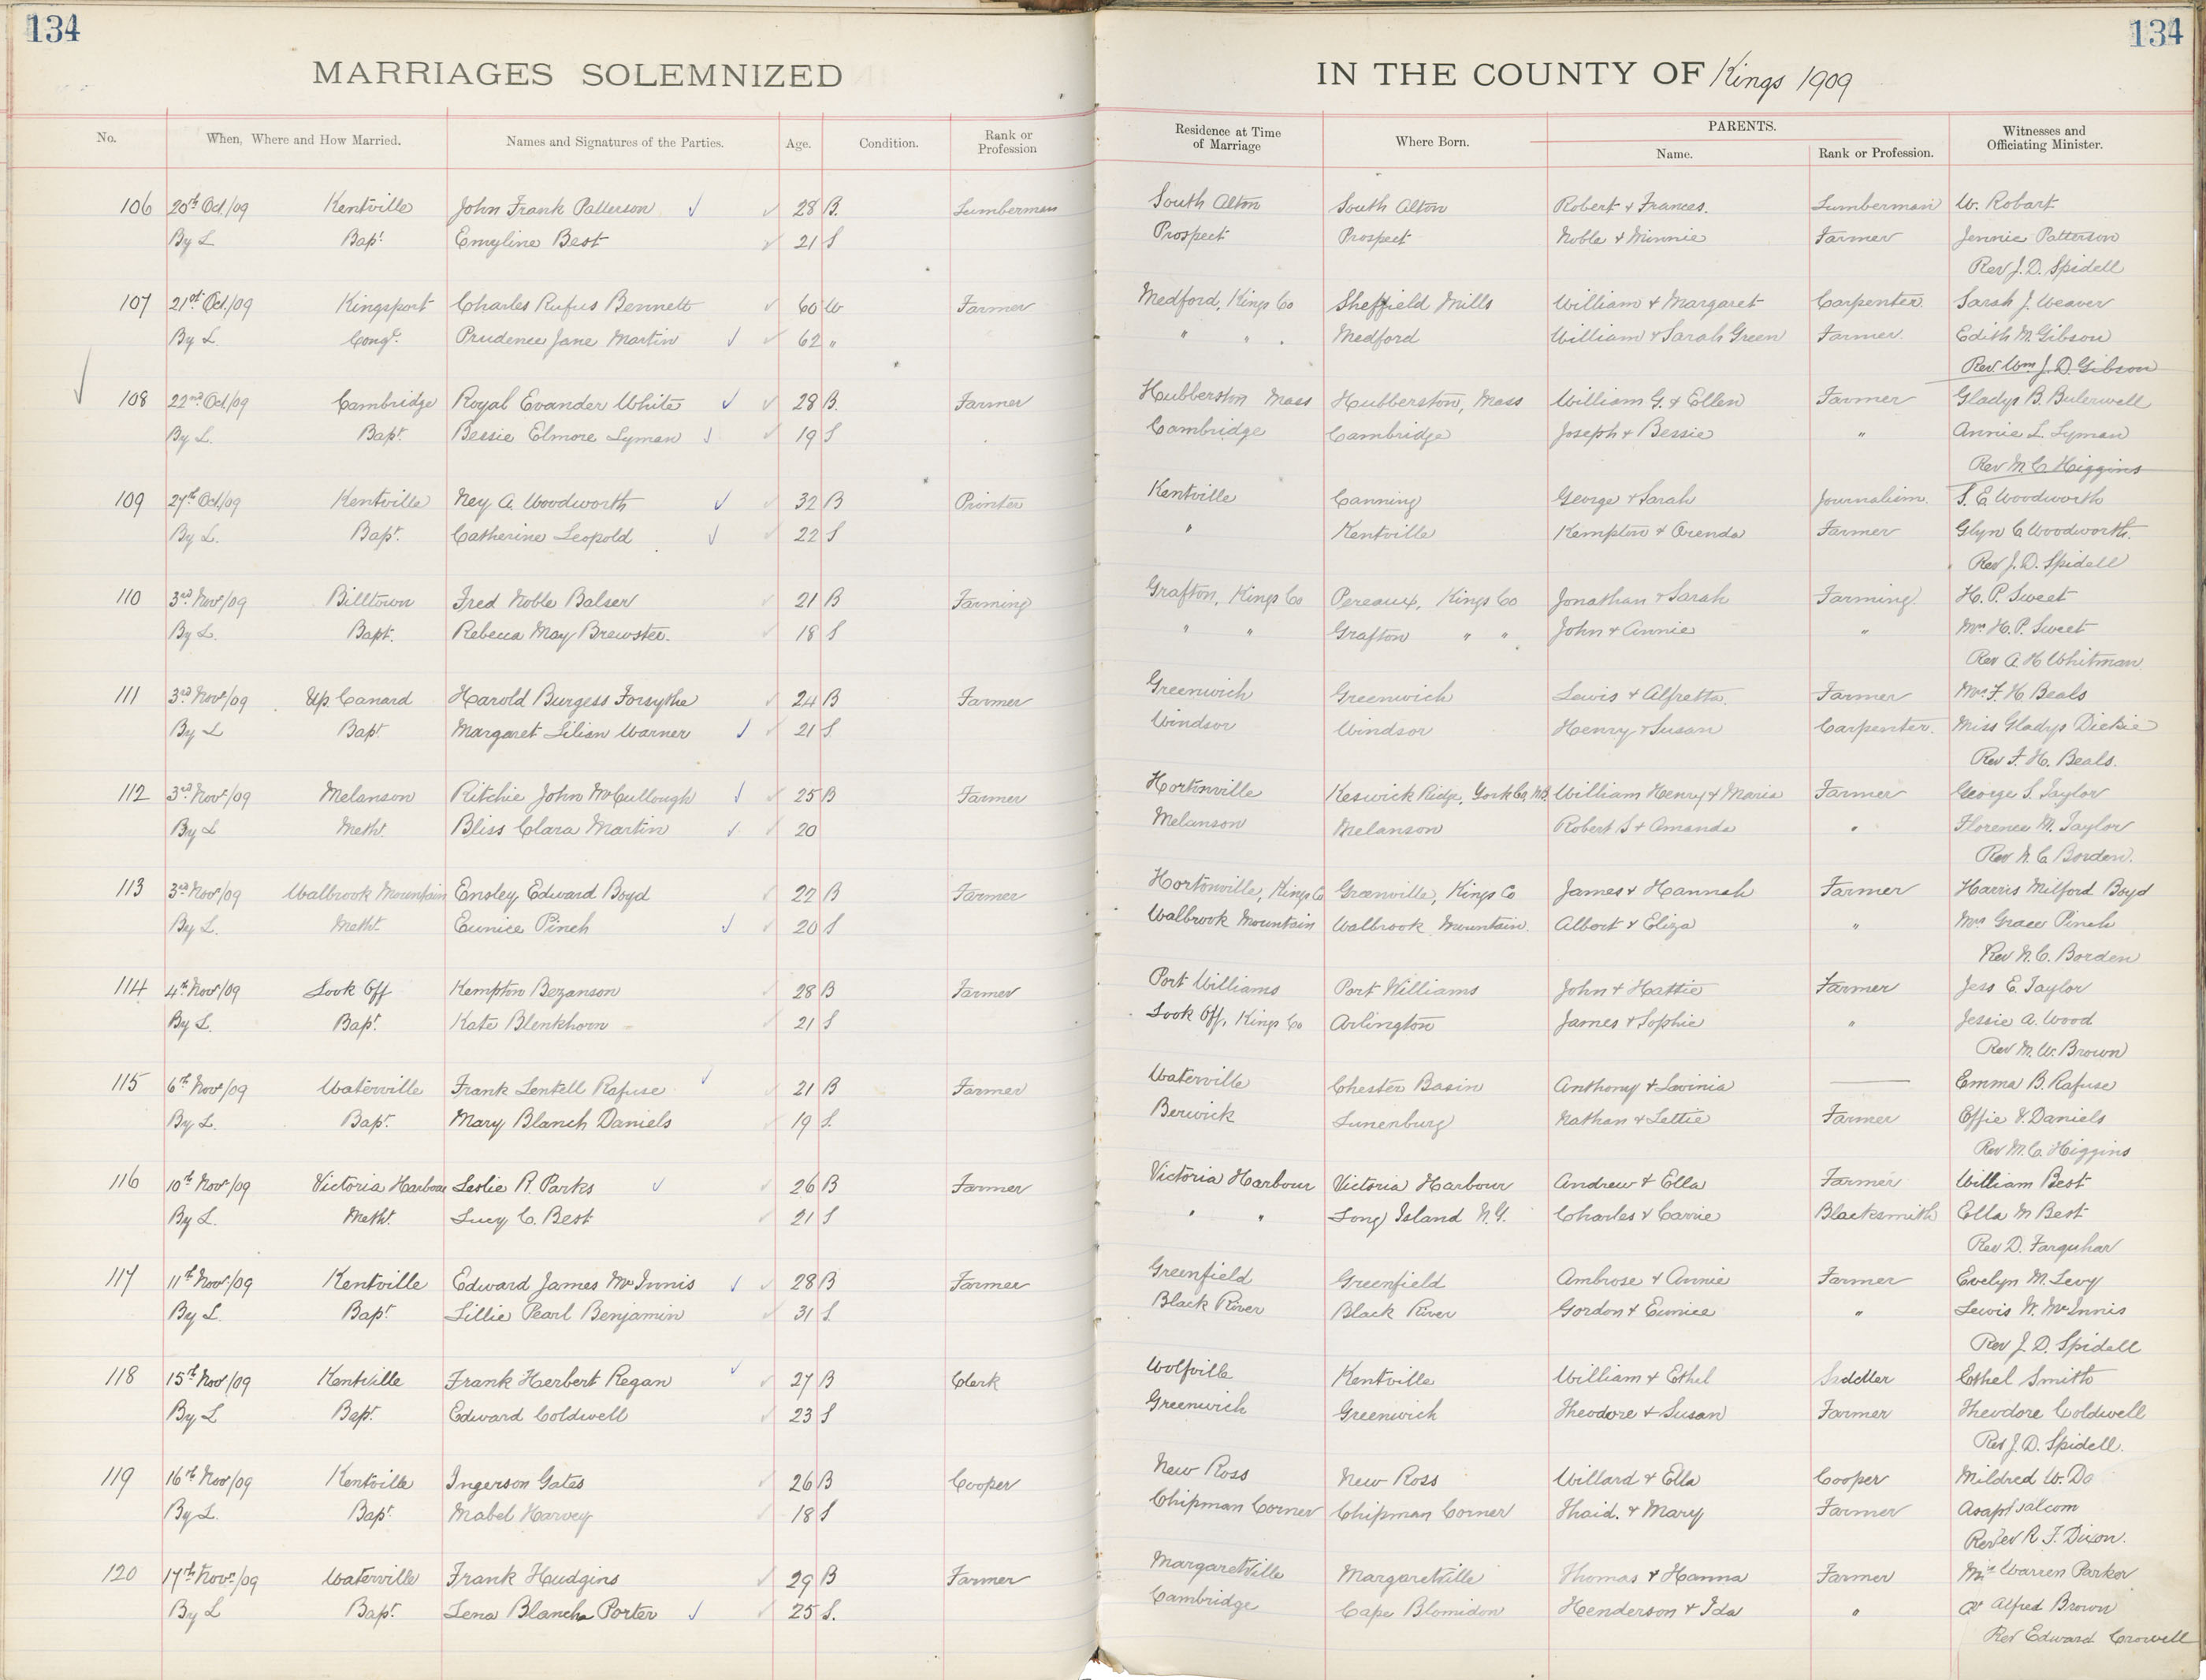 134
134
MARRIAGES SOLEMNIZED
IN THE COUNTY OF Kings 1909
No. When, Where and How Married. Names and Signatures of the Parties. Age. Condition. Rank or Profession Residence at Time of Marriage Where Born. PARENTS. Name. Rank or Profession. Witnesses and Officiating Minister.
106 20th Oct/09 Kentville John Frank Patterson 28 B. Lumberman South Alton South Alton Robert & Frances. Lumberman W. Robart
By L Bapt. Emyline Best 21 S Prospect Prospect Noble & Minnie Farmer Jennie Patterson
Rev J. D. Spidell
107 21st Oct./09 Kingsport Charles Rufus Bennett 60 W Farmer Medford, Kings Co Sheffield Mills William & Margaret Carpenter Sarah J. Weaver
By L. Congl. Prudence Jane Martin 62 " " " Medford William & Sarah Green Farmer Edith M. Gibson
Rev Wm J. D. Gibson
108 22nd Oct/09 Cambridge Royal Evander White 28 B. Farmer Hubberston Mass Hubberston, Mass William G. & Ellen Farmer Gladys B. Bulerwell
By L. Bapt. Bessie Elmore Lyman 19 S Cambridge Cambridge Joseph & Bessie " Annie L. Lyman
Rev M C Higgins
109 27th Oct/09 Kentville Ney A. Woodworth 32 B Printer Kentville Canning George & Sarah Journalism. S. E. Woodworth
By L. Bapt. Catherine Leopold 22 S " Kentville Kempton & Orenda Farmer Glyn C Woodworth.
Rev J. D. Spidell
110 3rd Nov/09 Billtown Fred Noble Balser 21 B Farming Grafton, Kings Co Pereaux, Kings Co Jonathan & Sarah Farming. H. P. Sweet
By L. Bapt. Rebecca May Brewster. 18 S " " Grafton " " John & Annie " Mrs H. P. Sweet
Rev A. H Whitman
111 3rd Nov/09 Up. Canard Harold Burgess Forsythe 24 B Farmer Greenwich Greenwich Lewis & Alfretta. Farmer Mrs F. H Beals
By L Bapt. Margaret Lilian Warner 21 S. Windsor Windsor Henry & Susan Carpenter. Miss Gladys Dickie
Rev F. H. Beals.
112 3rd Nov/09 Melanson Ritchie John McCullough 25 B Farmer Hortonville Keswick Ridge, York Co, N.B. William Henry & Maria Farmer George S. Taylor
By L Meth. Bliss Clara Martin 20 Melanson Melanson Robert S & Amanda " Florence M. Taylor
Rev N. C Borden.
113 3rd Nov/09 Walbrook Mountain Ensley Edward Boyd 22 B Farmer Hortonville, Kings Co Greenville, Kings Co James & Hannah Farmer Harris Milford Boyd
By L. Meth. Eunice Pinch 20 S Walbrook Mountain Walbrook Mountain. Albert & Eliza " Mrs Grace Pinch
Rev N. C. Borden
114 4th Nov/09 Look Off Kempton Bezanson 28 B Farmer Port Williams Port Williams John & Hattie Farmer Jess E. Taylor
By L. Bapt. Kate Blenkhorn 21 S Look Off, Kings Co Arlington James & Sophie " Jessie A. Wood
Rev M. W. Brown
115 6th Nov/09 Waterville Frank Lentell Rafuse 21 B Farmer Waterville Chester Basin Anthony & Lavinia — Emma B. Rafuse
By L. Bapt. Mary Blanch Daniels 19 S. Berwick Lunenburg Nathan & Lettie Farmer Effie V. Daniels
Rev M. C. Higgins
116 10th Nov/09 Victoria Harbour Leslie R. Parks 26 B Farmer Victoria Harbour Victoria Harbour Andrew & Ella Farmer William Best
By L. Meth. Lucy C. Best 21 S " " Long Island N.Y. Charles & Carrie Blacksmith Ella M Best
Rev D. Farquhar
117 11th Nov/09 Kentville Edward James McInnis 28 B Farmer Greenfield Greenfield Ambrose & Annie Farmer Evelyn M. Levy
By L. Bapt. Lillie Pearl Benjamin 31 S. Black River Black River Gordon & Eunice " Lewis W. McInnis
Rev J. D. Spidell
118 15th Nov/09 Kentville Frank Herbert Regan 27 B Clerk Wolfville Kentville William & Ethel Saddler Ethel Smith
By L Bapt. Edward Coldwell 23 S Greenwich Greenwich Theodore & Susan Farmer Theodore Coldwell
Rev J. D. Spidell.
119 16th Nov/09 Kentville Ingerson Gates 26 B Cooper New Ross New Ross Willard & Ella Cooper Mildred W. Do
By L. Bapt. Mabel Harvey 18 S Chipman Corner Chipman Corner Thaid. & Mary Farmer
Rev R. F. Dixon.
120 17th Nov./09 Waterville Frank Hudgins 29 B Farmer Margaretville Margaretville Thomas & Hanna Farmer Warren Parker
By L Bapt. Lena Blancha Porter 25 S. Cambridge Cape Blomidon Henderson & Ida " Alfred Brown
Rev Edward Crowell